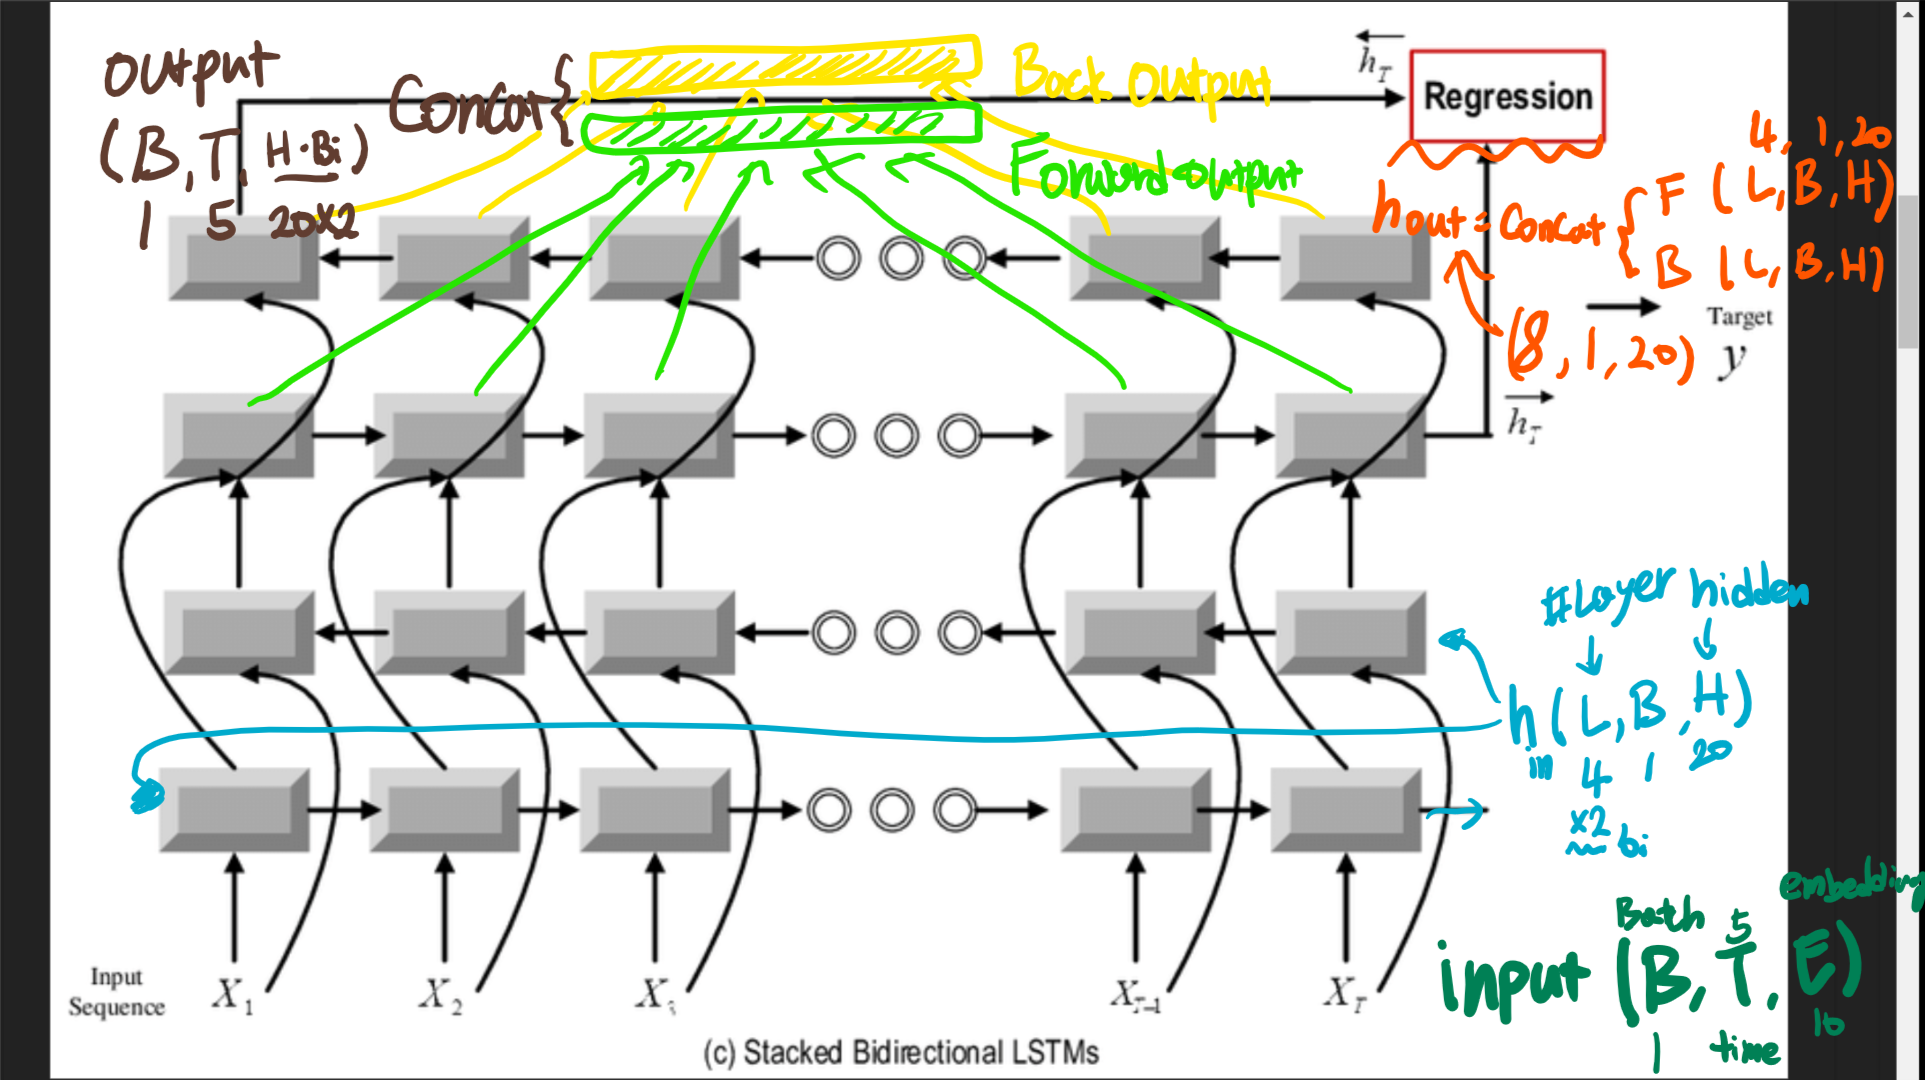 output
(B, T, H·Bi)
1 5 20x2
Concat {
Back Output
Forward output
h_T
Regression
4, 1, 20
hout = Concat { F (L, B, H)
B (L, B, H)
(8, 1, 20)
Target
y
h_T
#Layer hidden
h (L, B, H)
in 4 1 20
x2
bi
embedding
Batch 5
input (B, T, E)
10
1 time
Input
Sequence
X1 X2 X3 XT-1 XT
(c) Stacked Bidirectional LSTMs